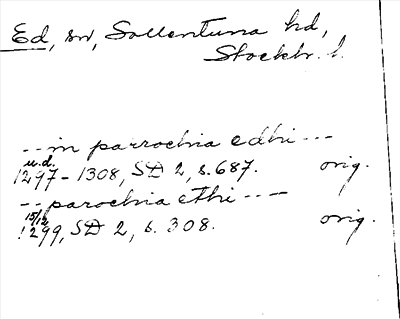 Ed, sn, Sollentuna hd,
Stockh. l.
-- in parrochia edhi ---
u.d.
1297-1308, SD 2, s. 687. orig.
-- parochia ethi ----
15/12
1299, SD 2, s. 308. orig.